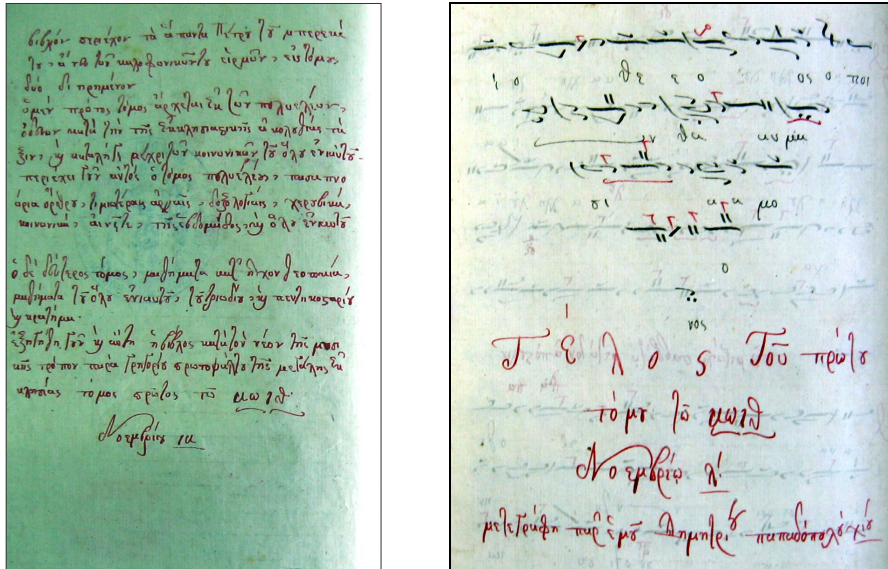 βιβλίον περιέχον τὰ ἅπαντα Πέτρου τοῦ μπερεκέ
του, ἄνευ τῶν καλοφωνικῶν του εἱρμῶν, εἰς τόμους
δύο διηρημένον
ὁ μὲν πρῶτος τόμος ἄρχεται ἐκ τῶν πολυελέων,
κατὰ τὴν τῆς ἐκκλησιαστικῆς ἀκολουθίας τά
ξιν, καὶ καταλήγει μέχρι τῶν κοινωνικῶν τοῦ ὅλου ἐνιαυτοῦ
περιέχει γοῦν αὐτὸς ὁ τόμος πολυελέους, πασαπνο
άρια ὄρθρου, δοξολογίας, χερουβικά,
κοινωνικά, αἰνεῖτε, τῆς ἑβδομάδος, καὶ ὅλου ἐνιαυτοῦ
ὁ δὲ δεύτερος τόμος, μαθήματα κατ' ἦχον θεοτοκία,
μαθήματα τοῦ ὅλου ἐνιαυτοῦ, τοῦ τριωδίου, καὶ πεντηκοσταρίου
καὶ κράτημα.
ἐξηγήθη γοῦν καὶ αὕτη ἡ βίβλος κατὰ τὸν νέον τῆς μουσι
κῆς τρόπον παρὰ Γρηγορίου πρωτοψάλτου τῆς μεγάλης ἐκ
κλησίας τόμος πρῶτος τῷ αωιθ
Νοεμβρίου ια
ι ο θε ε ο ος ο ποι
ν θα αυ μα
οι α α μο
ο
νος
Τέλος τοῦ πρώτου
τόμου τῷ αωιθ
Νοεμβρίῳ λ'
μετεγράφη παρ' ἐμοῦ Δημητρίου παπαδοπούλου χίου